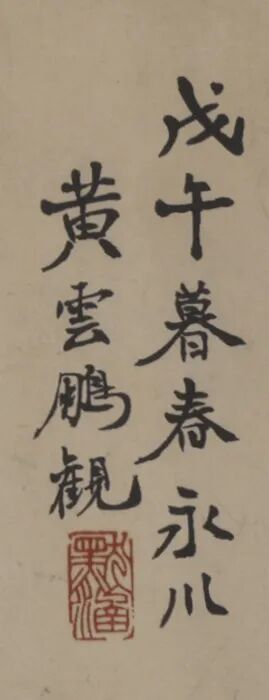 戊午暮春永川
黄雲鵬觀